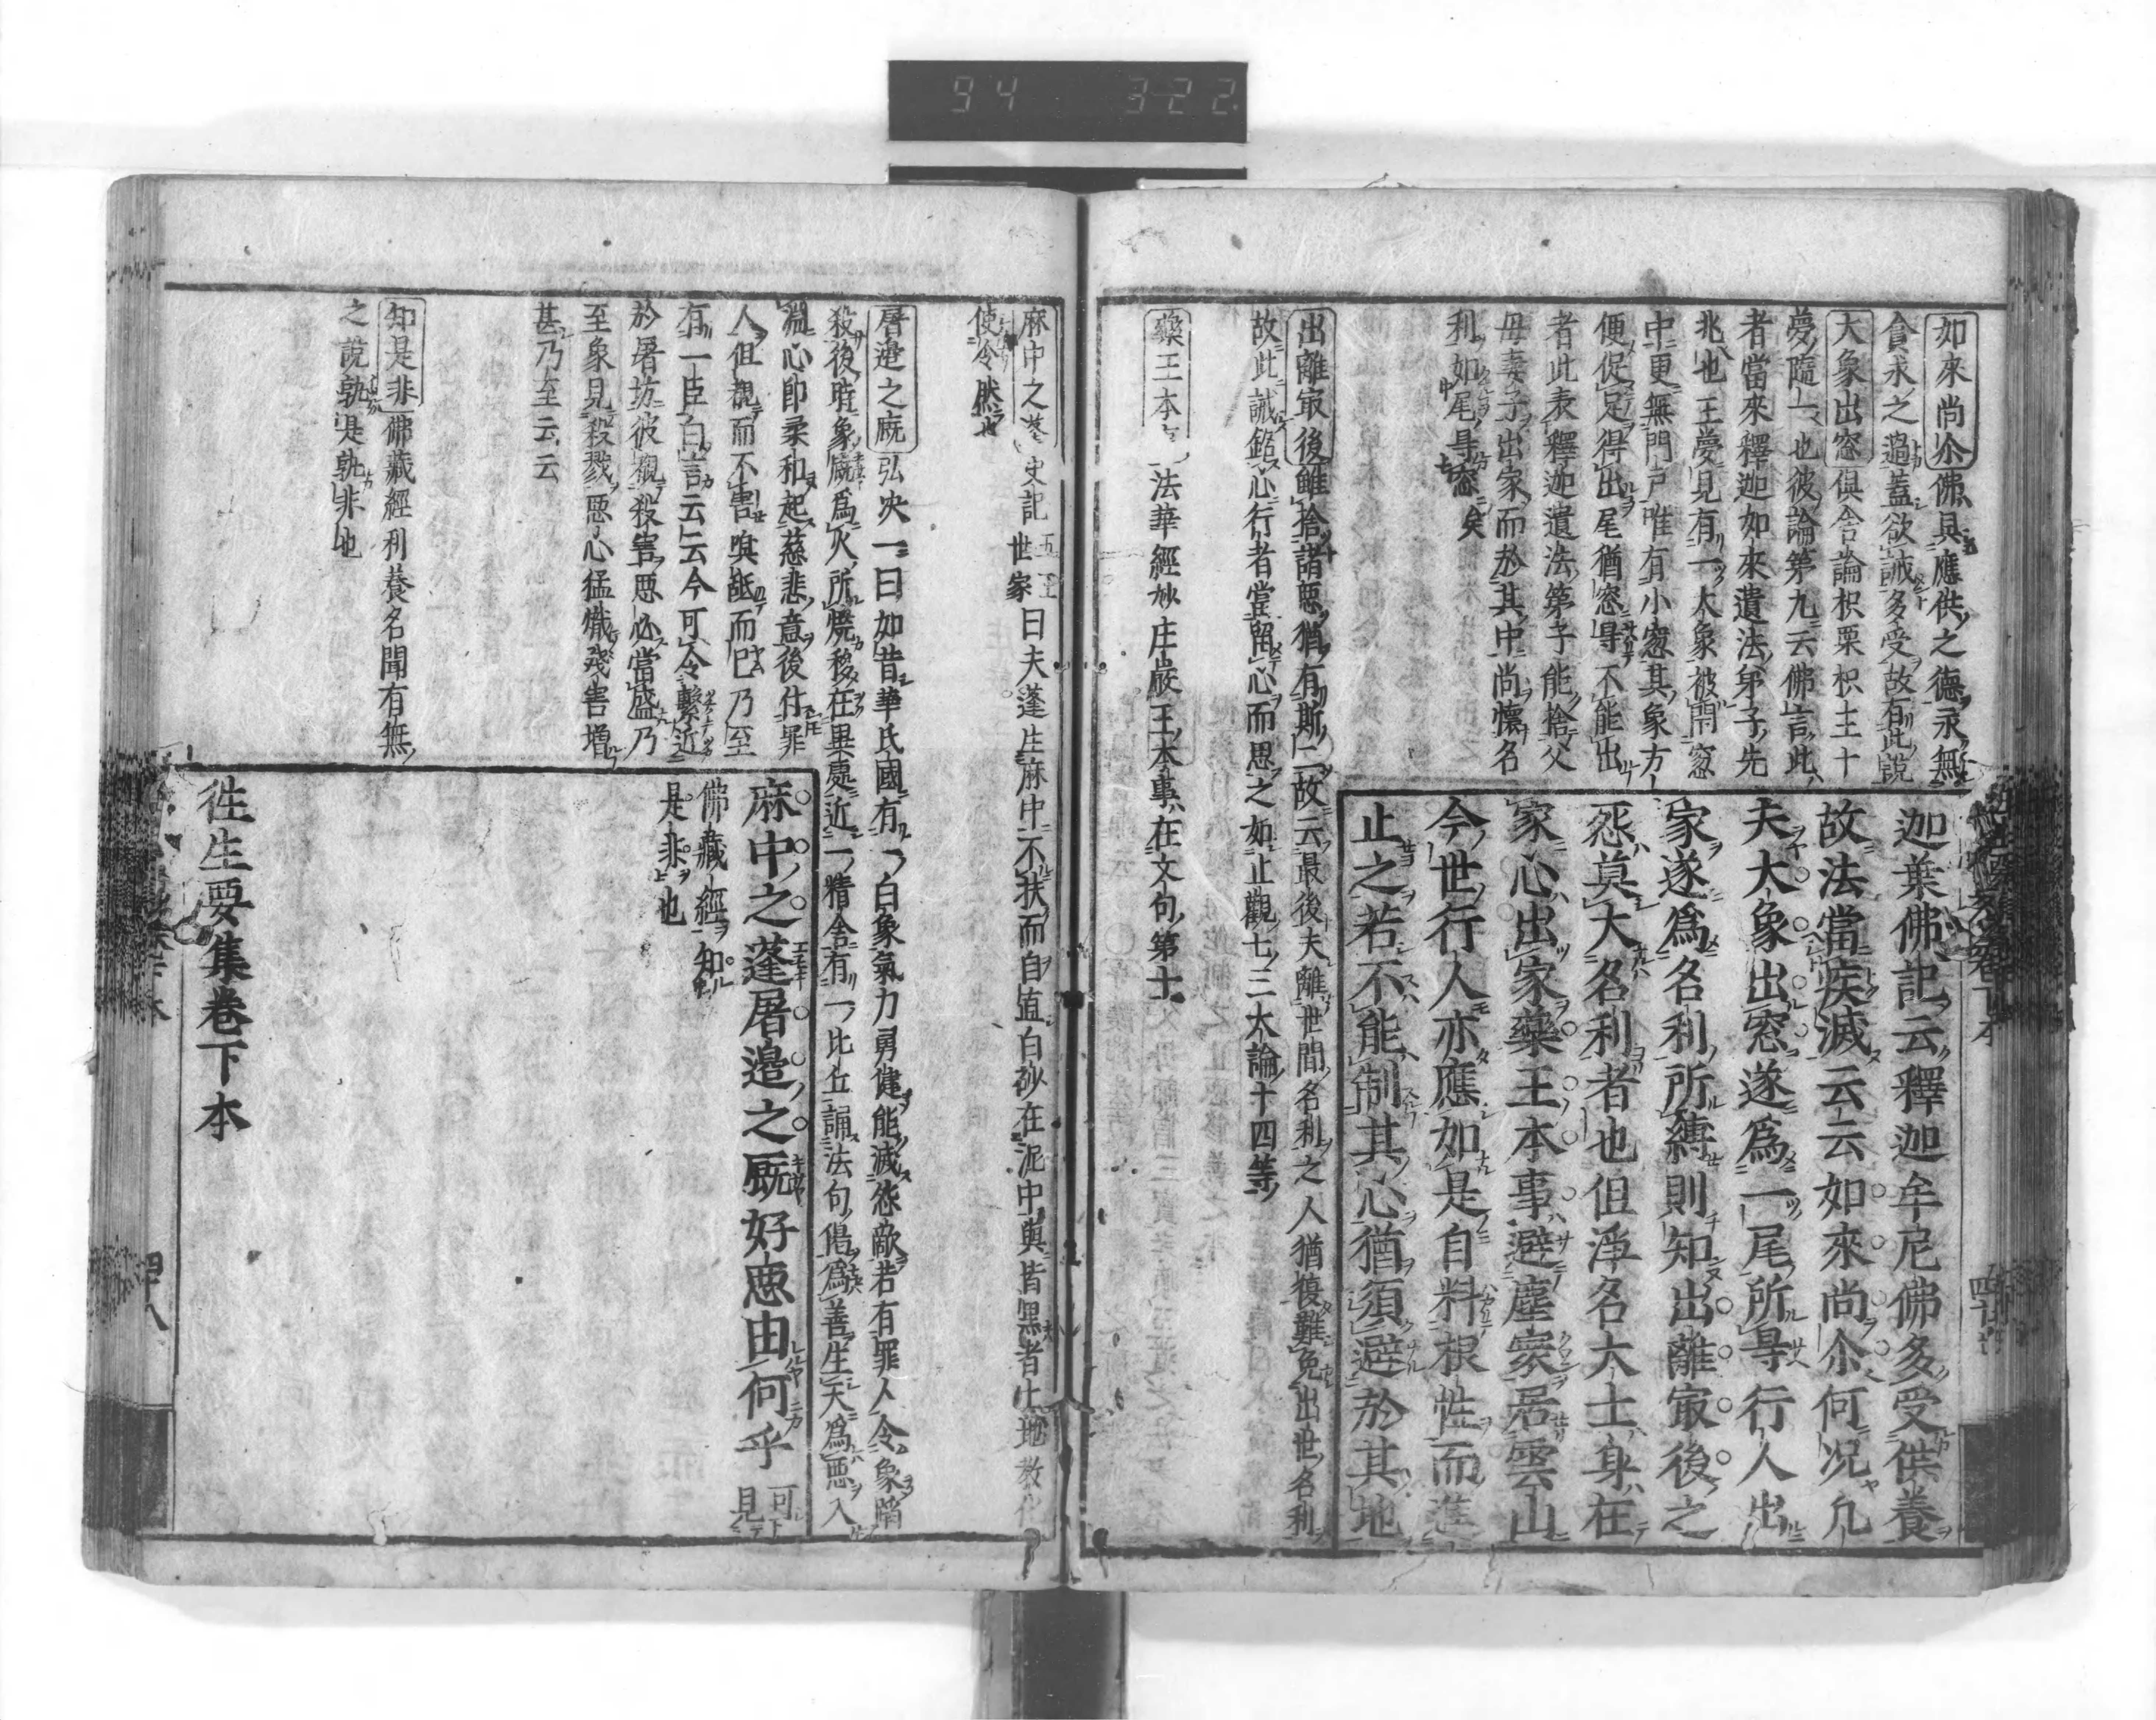 94 322
如來尚尒佛具應供之德永無
貪求之過蓋欲誡多受故有此說
大象出窓俱舍論枳栗枳王十
夢隨一也彼論第九云佛言此
者當來釋迦如來遺法弟子先
兆也王夢見有一大象被閇窓
中更無門戸唯有小窓其象方
便促足得出尾猶窓㝵不能出
者此表釋迦遺法第子能捨父
母妻子出家而於其中尚懷名
利如尾㝵窓矣
迦葉佛記云釋迦牟尼佛多受供養
故法當疾滅云云如來尚尒何况凡
夫大象出窓遂爲一尾所㝵行人出
家遂爲名利所縛則知出離㝡後之
怨莫大名利者也但淨名大士身在
家心出家藥王本事避塵家居雲山
今世行人亦應如是自料根性而進
止之若不能制其心猶須避於其地
出離㝡後雖捨諸惡猶有斯二故云最後夫離世間名利之人猶復難免出世名利
故此誡銘心行者當留心而思之如止觀七三大論十四等
藥王本 法華經妙庄嚴王本事在文句第十
麻中之 史記世家五王曰夫蓬生麻中不扶而自値白砂在泥中與皆黑者土地敎化
使令然也
屠邉之厩弘决一曰如昔華氏國有一白象氣力勇健能滅怨敵若有罪人令象蹈
殺後時象厩爲火所燒移在異處近一精舍有一比丘誦法句偈爲善生天爲惡入
淵心即柔和起慈悲意後付罪
人但覩而不害嗅䑛而巳乃至
有一臣白言云云今可令繫近
於屠坊彼覩殺害惡心當盛乃
至象見殺戮惡心猛熾殘害増
甚乃至云云
知是非佛藏經利養名聞有無
之說孰是孰非也
麻中之蓬屠邉之厩好惡由何乎可見
佛藏經知
是非也
徃生要集卷下本
四十八